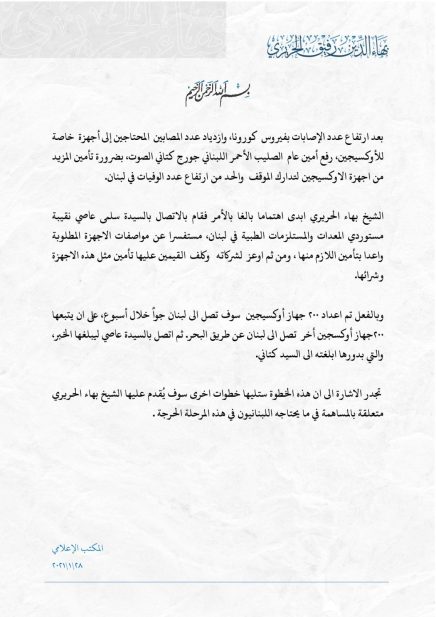 بهاء الدين رفيق الحريري
بسم الله الرحمن الرحيم
بعد ارتفاع عدد الإصابات بفيروس كورونا، وازدياد عدد المصابين المحتاجين إلى أجهزة خاصة
للأوكسيجين، رفع أمين عام الصليب الأحمر اللبناني جورج كتاني الصوت، بضرورة تأمين المزيد
من اجهزة الاوكسيجين لتدارك الموقف والحد من ارتفاع عدد الوفيات في لبنان.
الشيخ بهاء الحريري ابدى اهتماما بالغا بالأمر فقام بالاتصال بالسيدة سلمى عاصي نقيبة
مستوردي المعدات والمستلزمات الطبية في لبنان، مستفسرا عن مواصفات الاجهزة المطلوبة
واعدا بتأمين اللازم منها ، ومن ثم اوعز لشركاته وكلف القيمين عليها تأمين مثل هذه الاجهزة
وشرائها.
وبالفعل تم اعداد ٢٠٠ جهاز أوكسيجين سوف تصل الى لبنان جواً خلال أسبوع، على ان يتبعها
٢٠٠جهاز أوكسجين أخر تصل الى لبنان عن طريق البحر. ثم اتصل بالسيدة عاصي ليبلغها الخبر،
والتي بدورها ابلغته الى السيد كتاني.
تجدر الاشارة الى ان هذه الخطوة ستليها خطوات اخرى سوف يُقدم عليها الشيخ بهاء الحريري
متعلقة بالمساهمة في ما يحتاجه اللبنانيون في هذه المرحلة الحرجة .
المكتب الإعلامي
٢٠٢١\١\٢٨